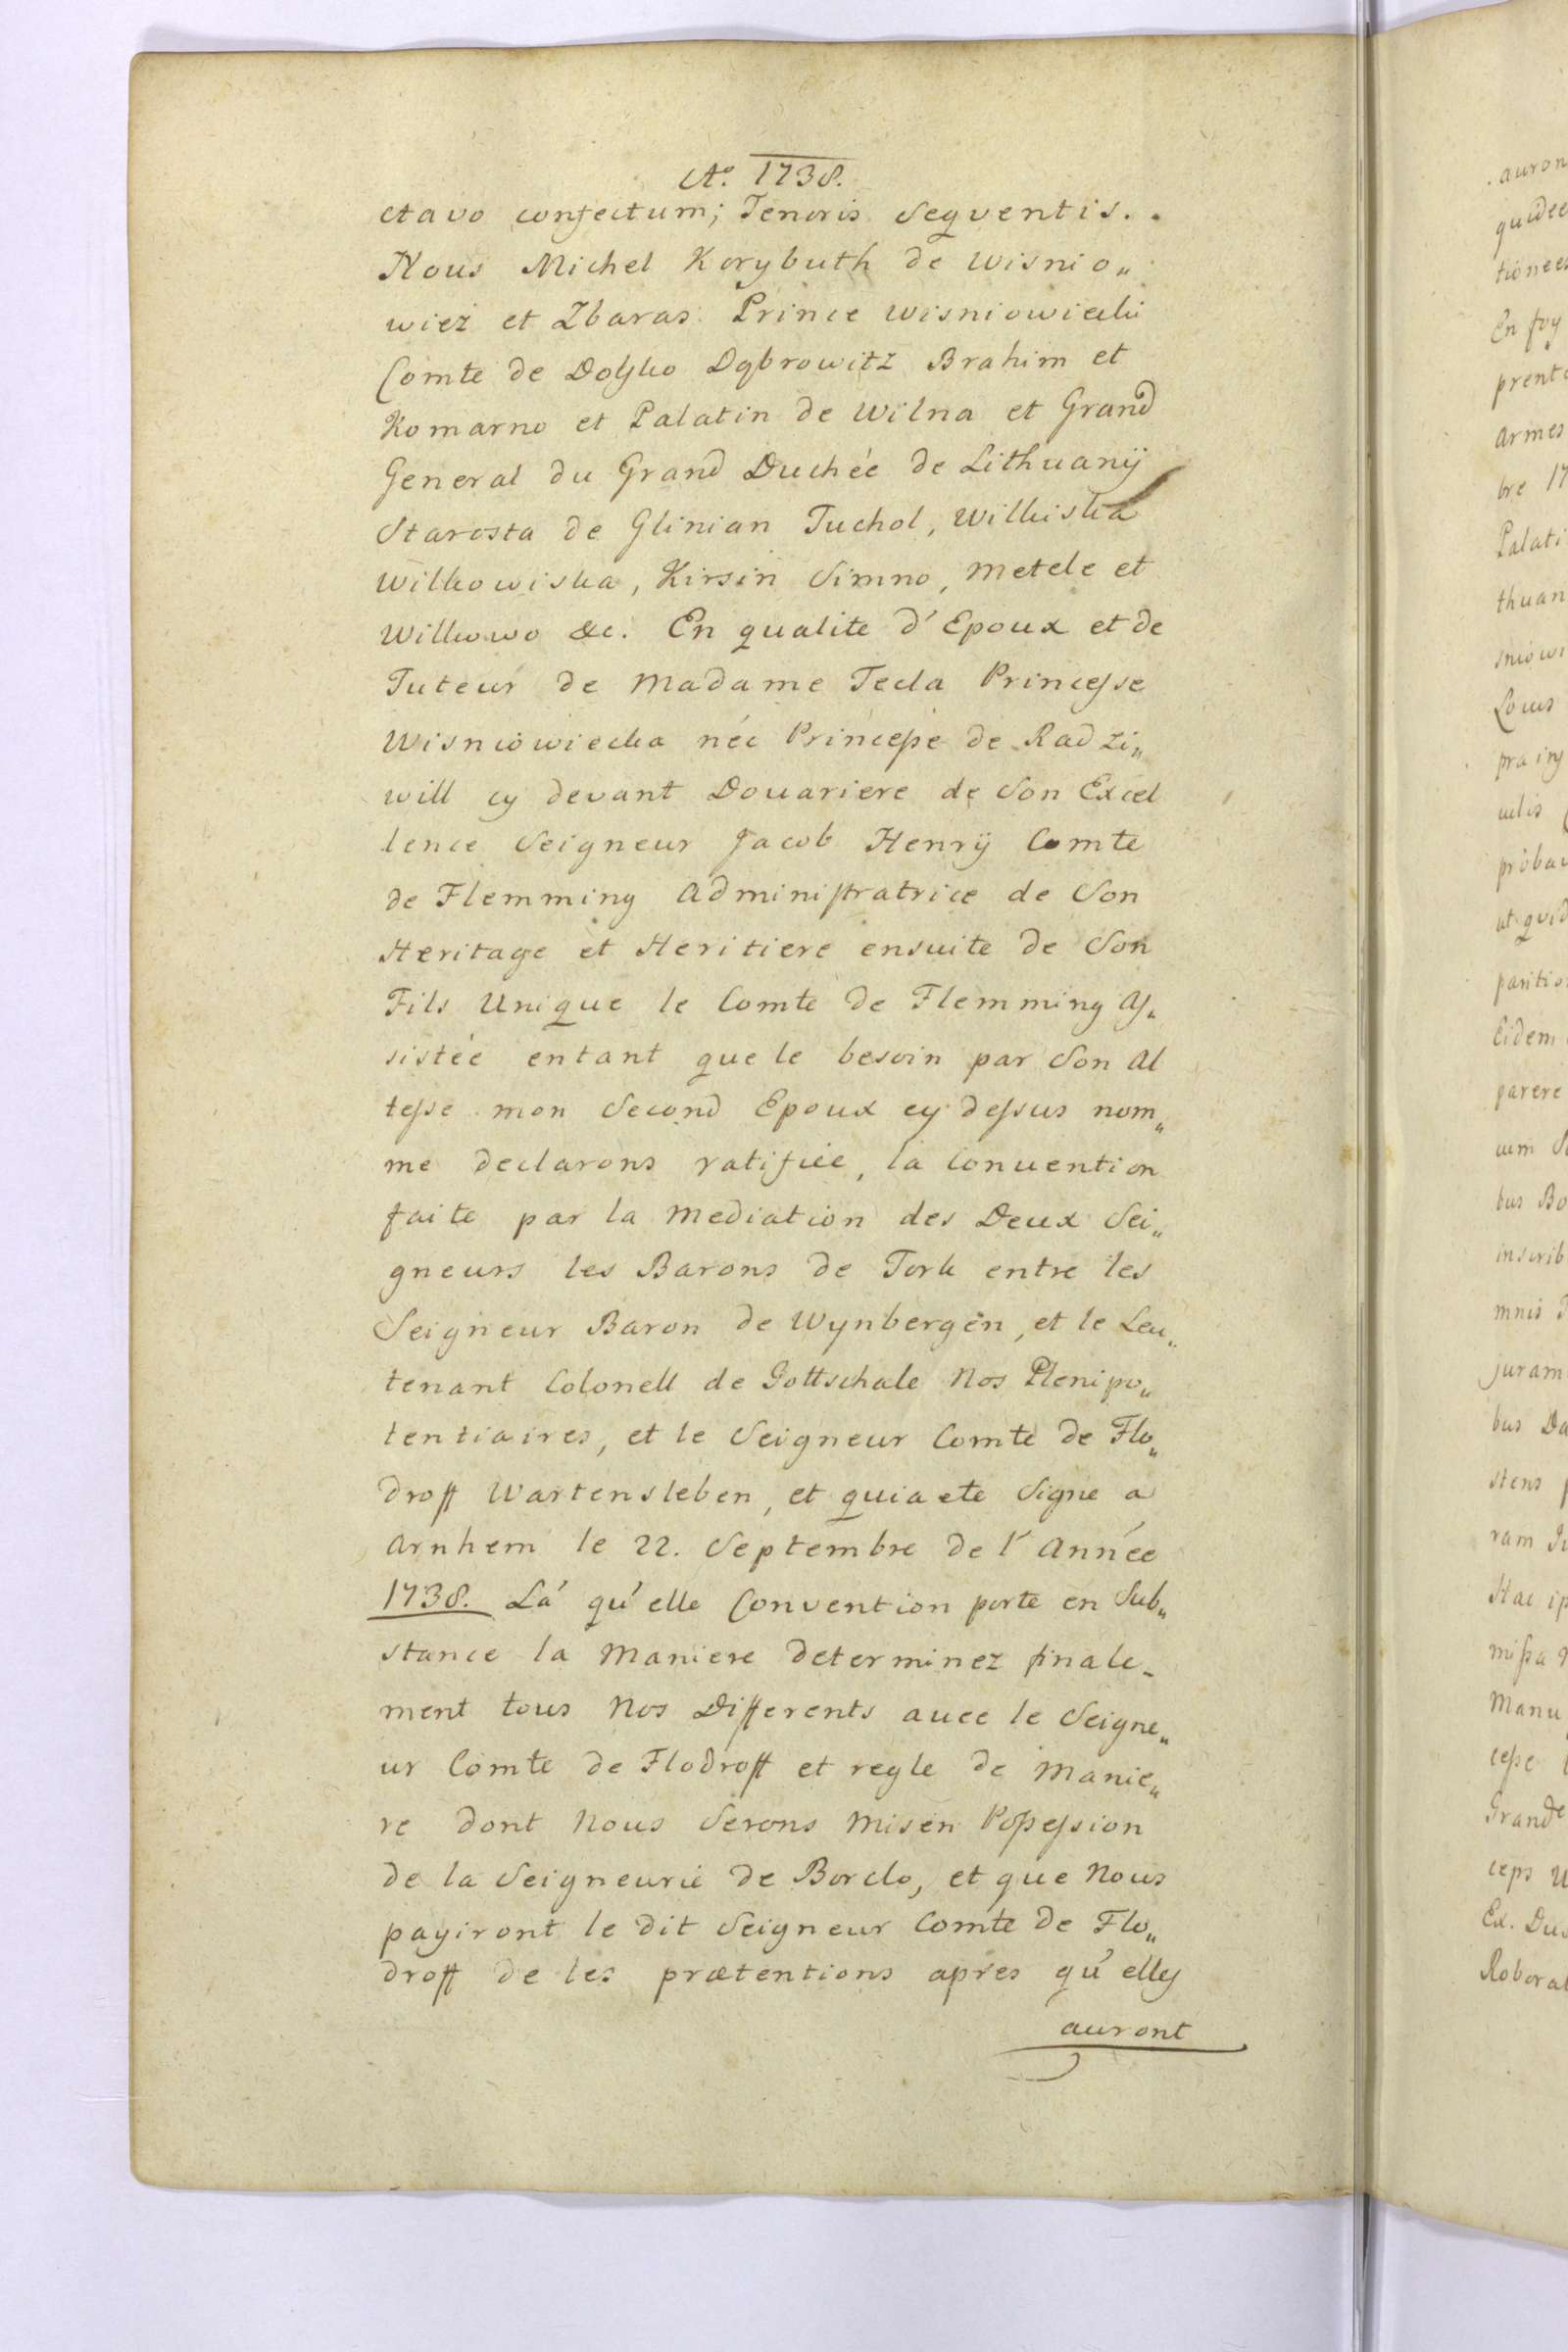 Aº. 1738.
ctavo confectum; Tenoris Sequentis..
Nous Michel Korybuth de Wisnio„
wiez et Zbaras Prince Wisniowiecki
Comte de Dolsko Dąbrowitz Brahim et
Komarno et Palatin de Wilna et Grand
General du Grand Duchée de Lithuanÿ
Starosta de Glinian Tuchol, Wilkiska
Wilkowiska, Kirsin Simno, Metele et
Wilkowo &c. En qualite d'Epoux et de
Tuteur de Madame Tecla Princesse
Wisniowiecka née Princesse de Radzi„
will cy devant Douariere de Son Excel
lence Seigneur Jacob Henrÿ Comte
de Flemming Administratrice de Son
Heritage et Heritiere ensuite de Son
Fils Unique le Comte de Flemming As„
sistée entant que le besoin par Son Al
tesse mon Second Epoux cy dessus nom„
me declarons ratifiée, la Convention
faite par la Mediation des Deux Sei„
gneurs les Barons de Tork entre les
Seigneur Baron de Wynbergen, et le Leu„
tenant Colonell de Gottschale Nos Plenipo„
tentiaires, et le Seigneur Comte de Flo„
droff Wartensleben, et quia ete Signe a
Arnhem le 22. Septembre de l'Année
1738. La' qu'elle Convention porte en Sub„
stance la Maniere determinez finale-
ment tous Nos Differents avec le Seigne„
ur Comte de Flodroff et regle de Manie„
re dont Nous Serons Misen Possession
de la Seigneurie de Borclo, et que Nous
payiront le dit Seigneur Comte de Flo„
droff de les prætentions apres qu'elles
auront